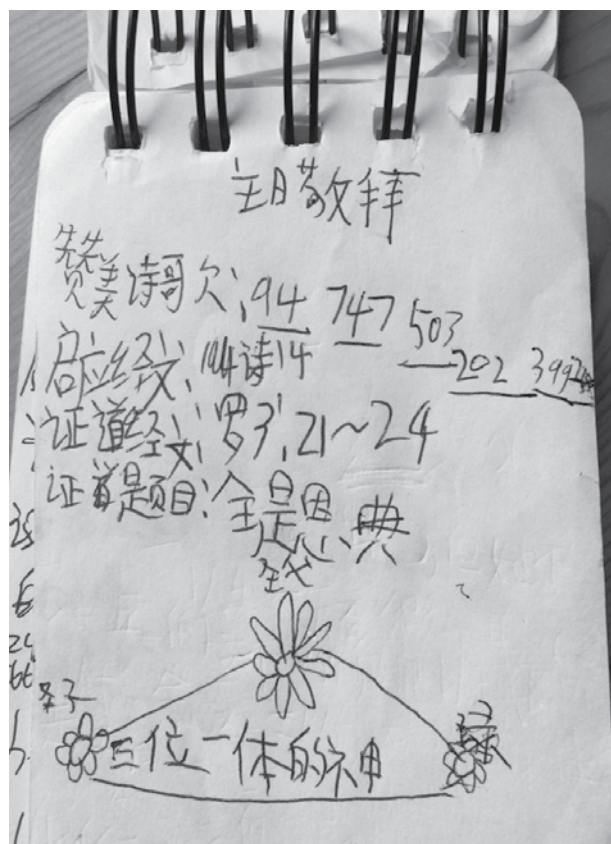 主日敬拜
赞美诗哥欠：94 747 503 202 399
启应经文：诗14
证道经文：罗3：21～24
证道题目：全是恩典
圣父
圣子
三位一体的神